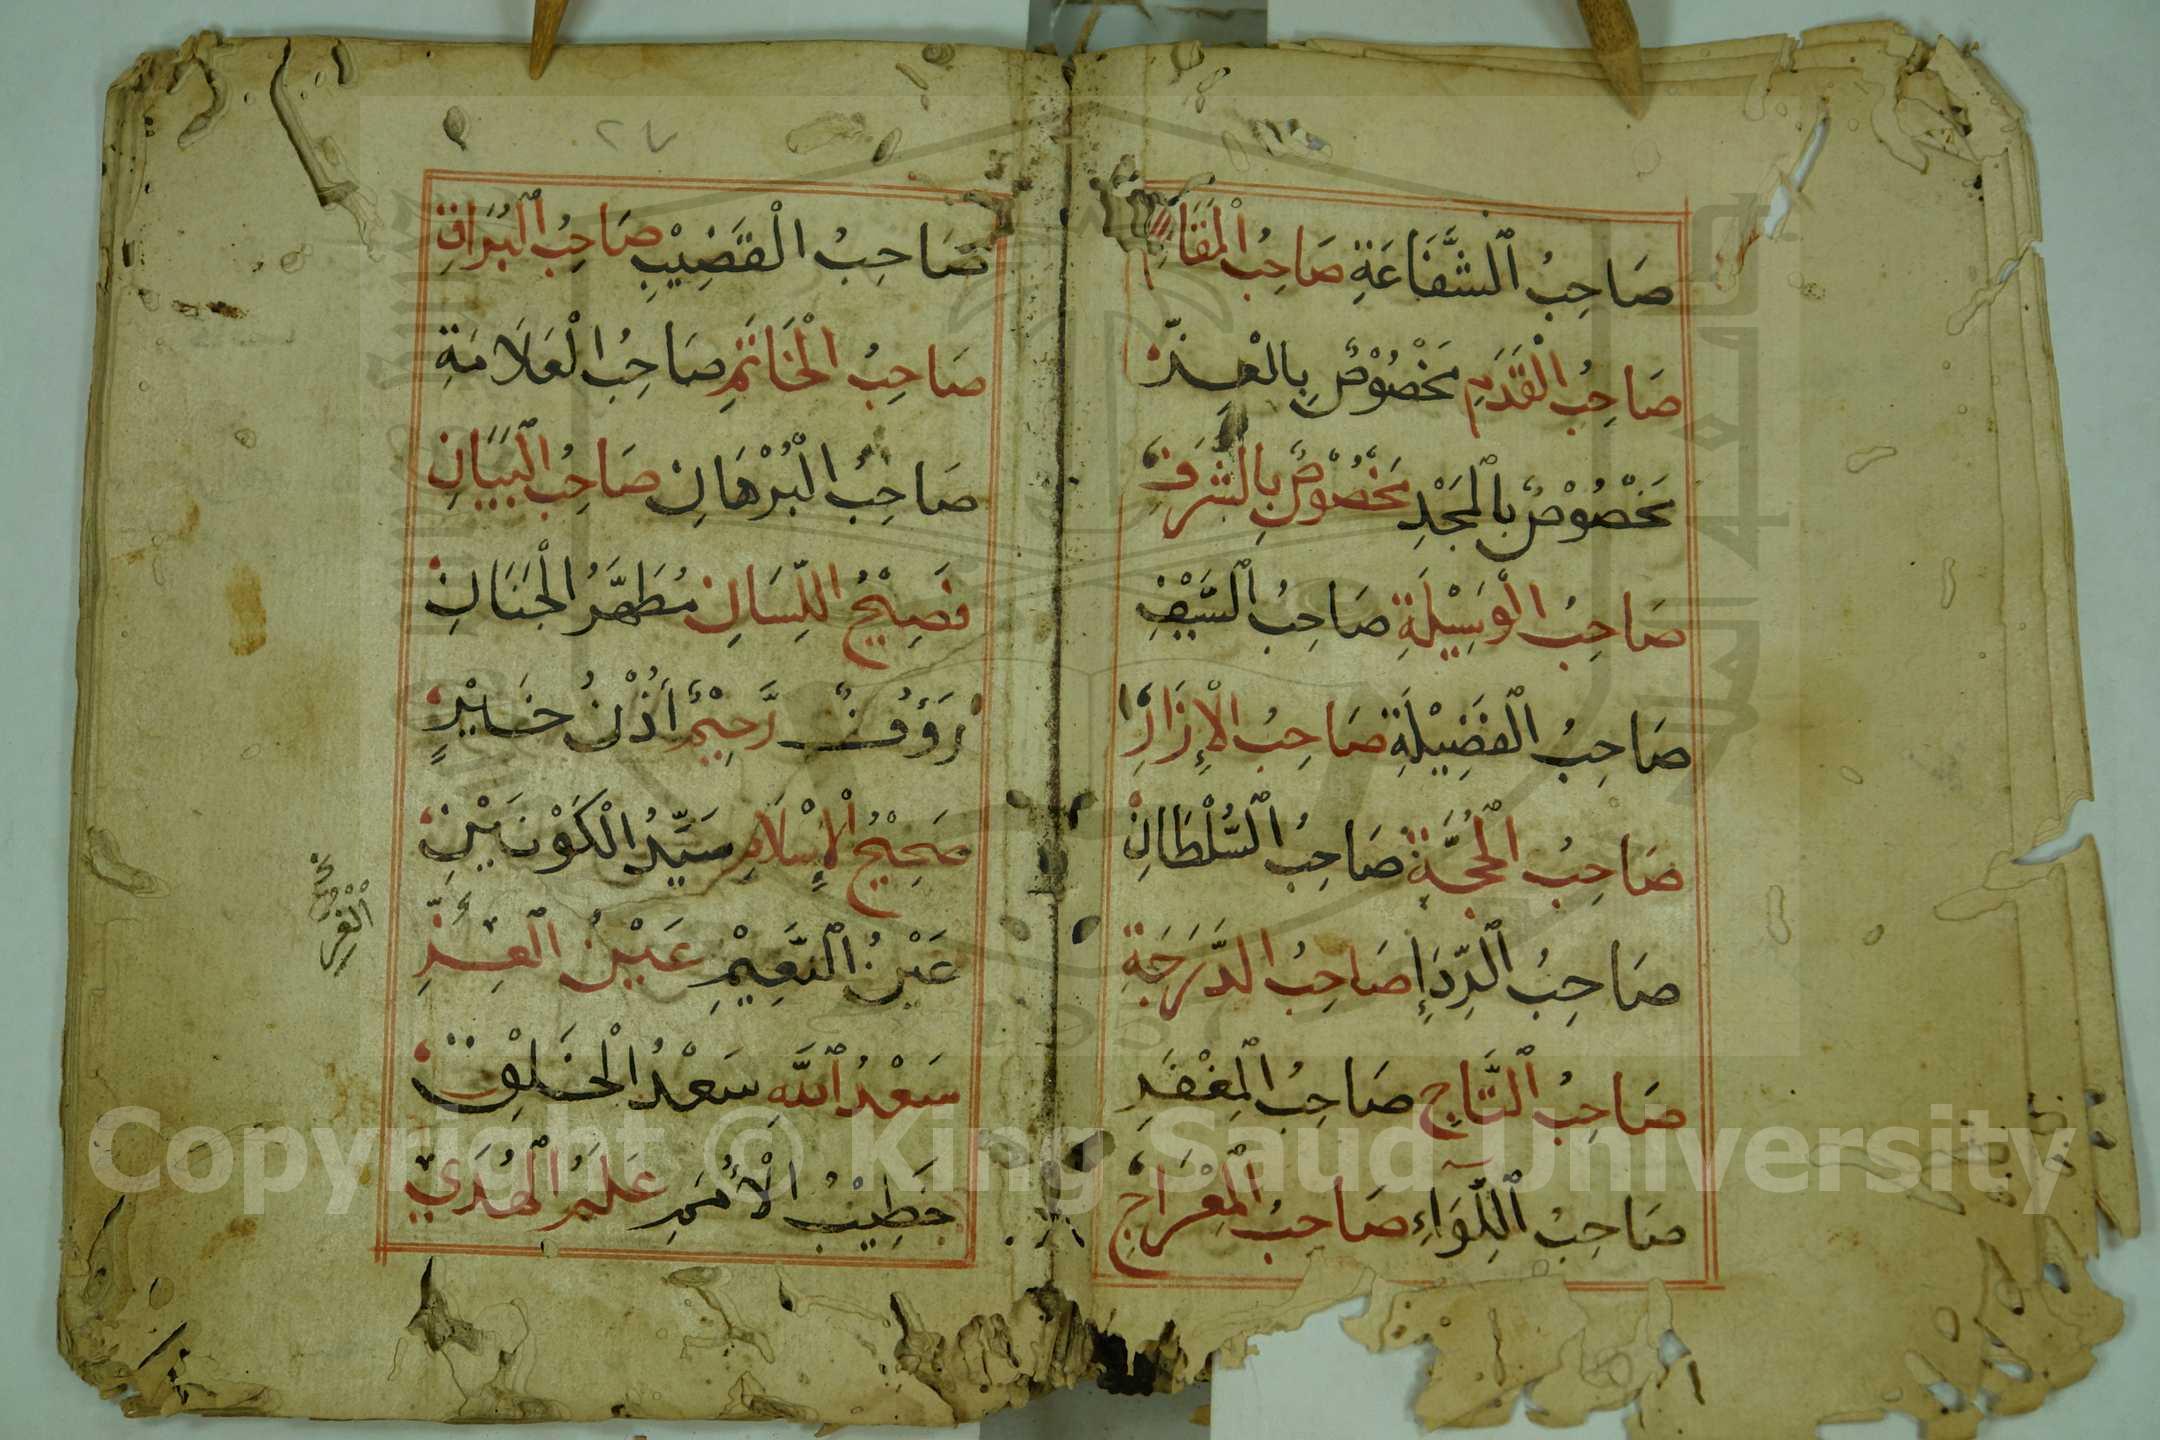 صَاحِبُ ٱلشَّفَاعَةِ صَاحِبُ الْمَقَامِ
صَاحِبُ الْقَدَمِ مَخْصُوْصٌ بِالْعِزِّ
مَخْصُوْصٌ بِالْمَجْدِ مَخْصُوْصٌ بِالشَّرَفِ
صَاحِبُ الْوَسِيْلَةِ صَاحِبُ ٱلسَّيْفِ
صَاحِبُ ٱلْفَضِيْلَةِ صَاحِبُ الْإِزَارِ
صَاحِبُ الْحُجَّةِ صَاحِبُ ٱلسُّلْطَانِ
صَاحِبُ ٱلرِّدَإِ صَاحِبُ الدَّرَجَةِ
صَاحِبُ ٱلتَّاجِ صَاحِبُ الْمِغْفَرِ
صَاحِبُ ٱللِّوَآءِ صَاحِبُ الْمِعْرَاجِ
٢٧
صَاحِبُ الْقَضِيْبِ صَاحِبُ الْبُرَاقِ
صَاحِبُ الْخَاتَمِ صَاحِبُ الْعَلَامَةِ
صَاحِبُ الْبُرْهَانِ صَاحِبُ الْبَيَانِ
فَصِيْحُ اللِّسَانِ مُطَهَّرُ الْجَنَانِ
رَؤُفٌ رَّحِيْمٌ أُذُنُ خَيْرٍ
صَحِيْحُ الْإِسْلَامِ سَيِّدُ الْكَوْنَيْنِ
عَيْنُ النَّعِيْمِ عَيْنُ الْعِزِّ
سَعْدُ ٱللَّهِ سَعْدُ الْخَلْقِ
خَطِيْبُ الْأُمَمِ عَلَمُ الْهُدَىٰ
Copyright © King Saud University